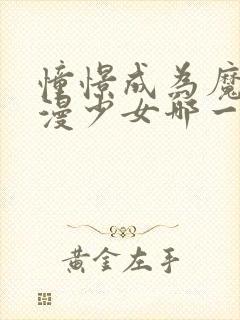 憧憬成为魔
漫少女那一
黄金左手